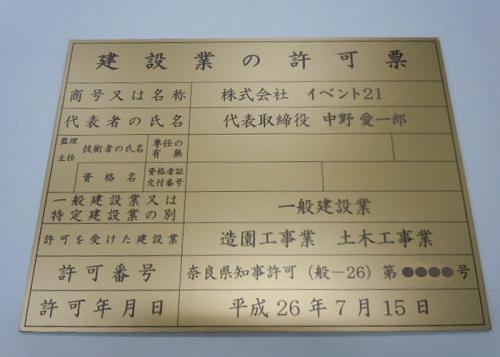 建設業の許可票
商号又は名称 株式会社 イベント21
代表者の氏名 代表取締役 中野愛一郎
監理
主任 技術者の氏名 専任の
有無
資格名 資格者証
交付番号
一般建設業又は
特定建設業の別 一般建設業
許可を受けた建設業 造園工事業 土木工事業
許可番号 奈良県知事許可(般-26)第●●●●号
許可年月日 平成26年7月15日